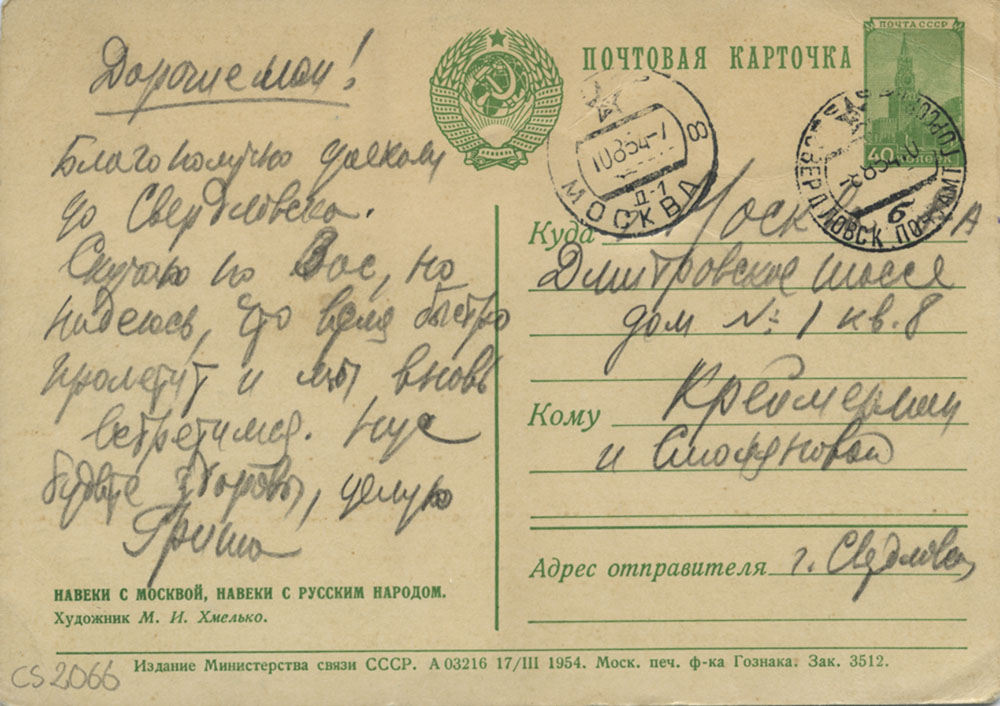 ПОЧТОВАЯ КАРТОЧКА
ПОЧТА СССР
40 КОПЕЕК
МОСКВА
Д-1
8
10854-7
СВЕРДЛОВСК ПОЧТАМТ
б
Дорогие мои!
Благополучно доехал
до Свердловска.
Скучаю по Вас, но
надеюсь, что время быстро
пролетит и мы вновь
встретимся. Ну с
будьте здоровы, целую
Гриша
НАВЕКИ С МОСКВОЙ, НАВЕКИ С РУССКИМ НАРОДОМ.
Художник М. И. Хмелько.
Куда Москва
Дмитровское шоссе
дом № 1 кв. 8
Кому
и Смоляновой
Адрес отправителя г. Свердловск
Издание Министерства связи СССР. А 03216 17/III 1954. Моск. печ. ф-ка Гознака. Зак. 3512.
CS2066